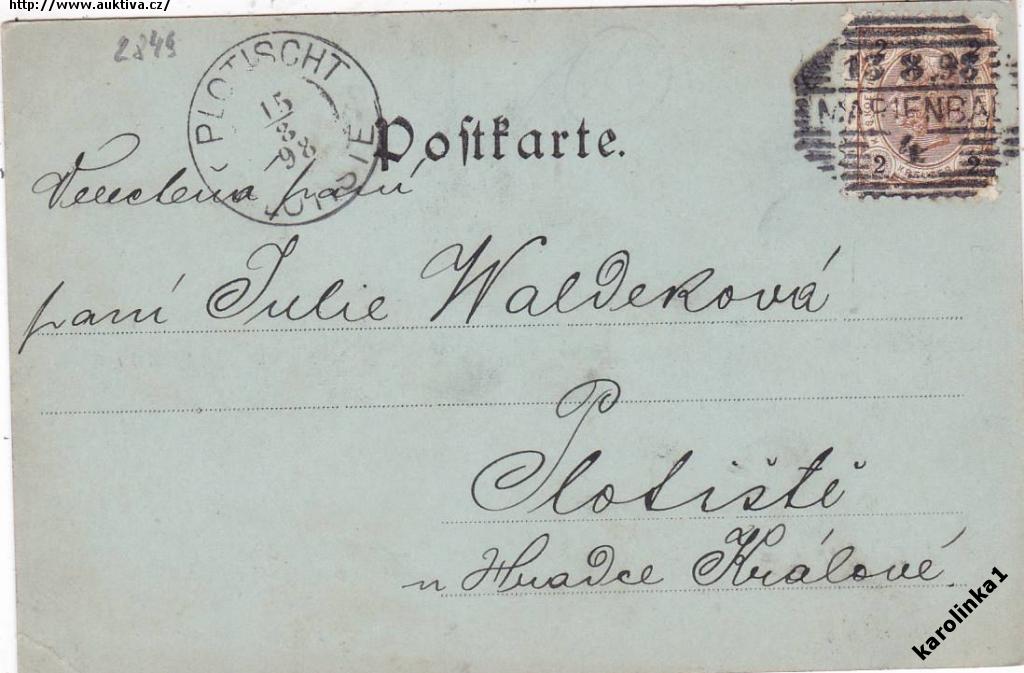 http://www.auktiva.cz/
2849
PLOTISCHT
15/8/98
PLOTIŠTĚ
2 2
13 8.98
MARIENBAD
4
2 2
Postkarte.
Veectena paní
paní Julie Waldeková
P
Plotiště
u Hradce Králové.
karolinka1